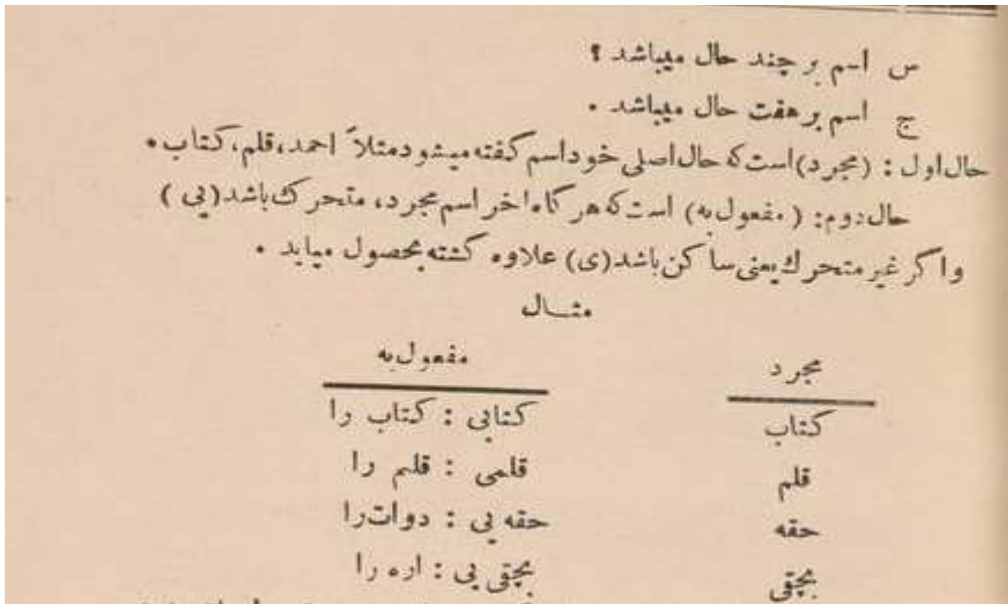 س اسم بر چند حال میباشد ؟
ج اسم بر هفت حال میباشد .
حال اول : (مجرد) است که حال اصلی خود اسم گفته میشود مثلاً احمد، قلم، کتاب .
حال دوم: (مفعول به) است که هر گاه اخر اسم مجرد، متحرك باشد (یی)
واگر غیر متحرك یعنی ساکن باشد (ی) علاوه گشته بحصول میاید .
مثال
مجرد مفعول به
کتاب کتابی : کتاب را
قلم قلمی : قلم را
حقه حقه یی : دوات را
بچقی بچقی یی : اره را